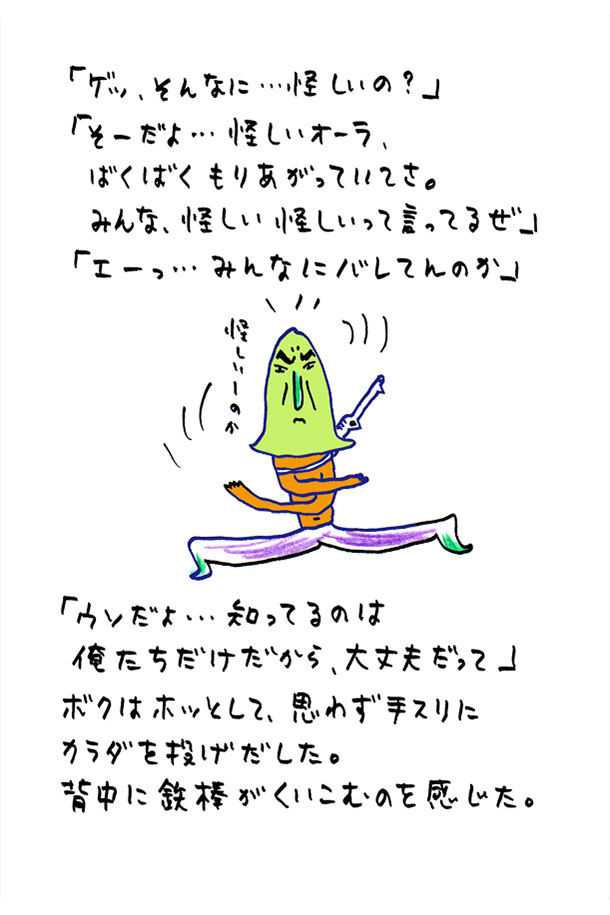 「ゲッ、そんなに…怪しいの？」
「そーだよ…怪しいオーラ、
ばくばくもりあがっていてさ。
みんな、怪しい怪しいって言ってるぜ」
「エーっ…みんなにバレてんのか」
怪しいーのか
「ウソだよ…知ってるのは
俺たちだけだから、大丈夫だって」
ボクはホッとして、思わず手スリに
カラダを投げだした。
背中に鉄棒がくいこむのを感じた。